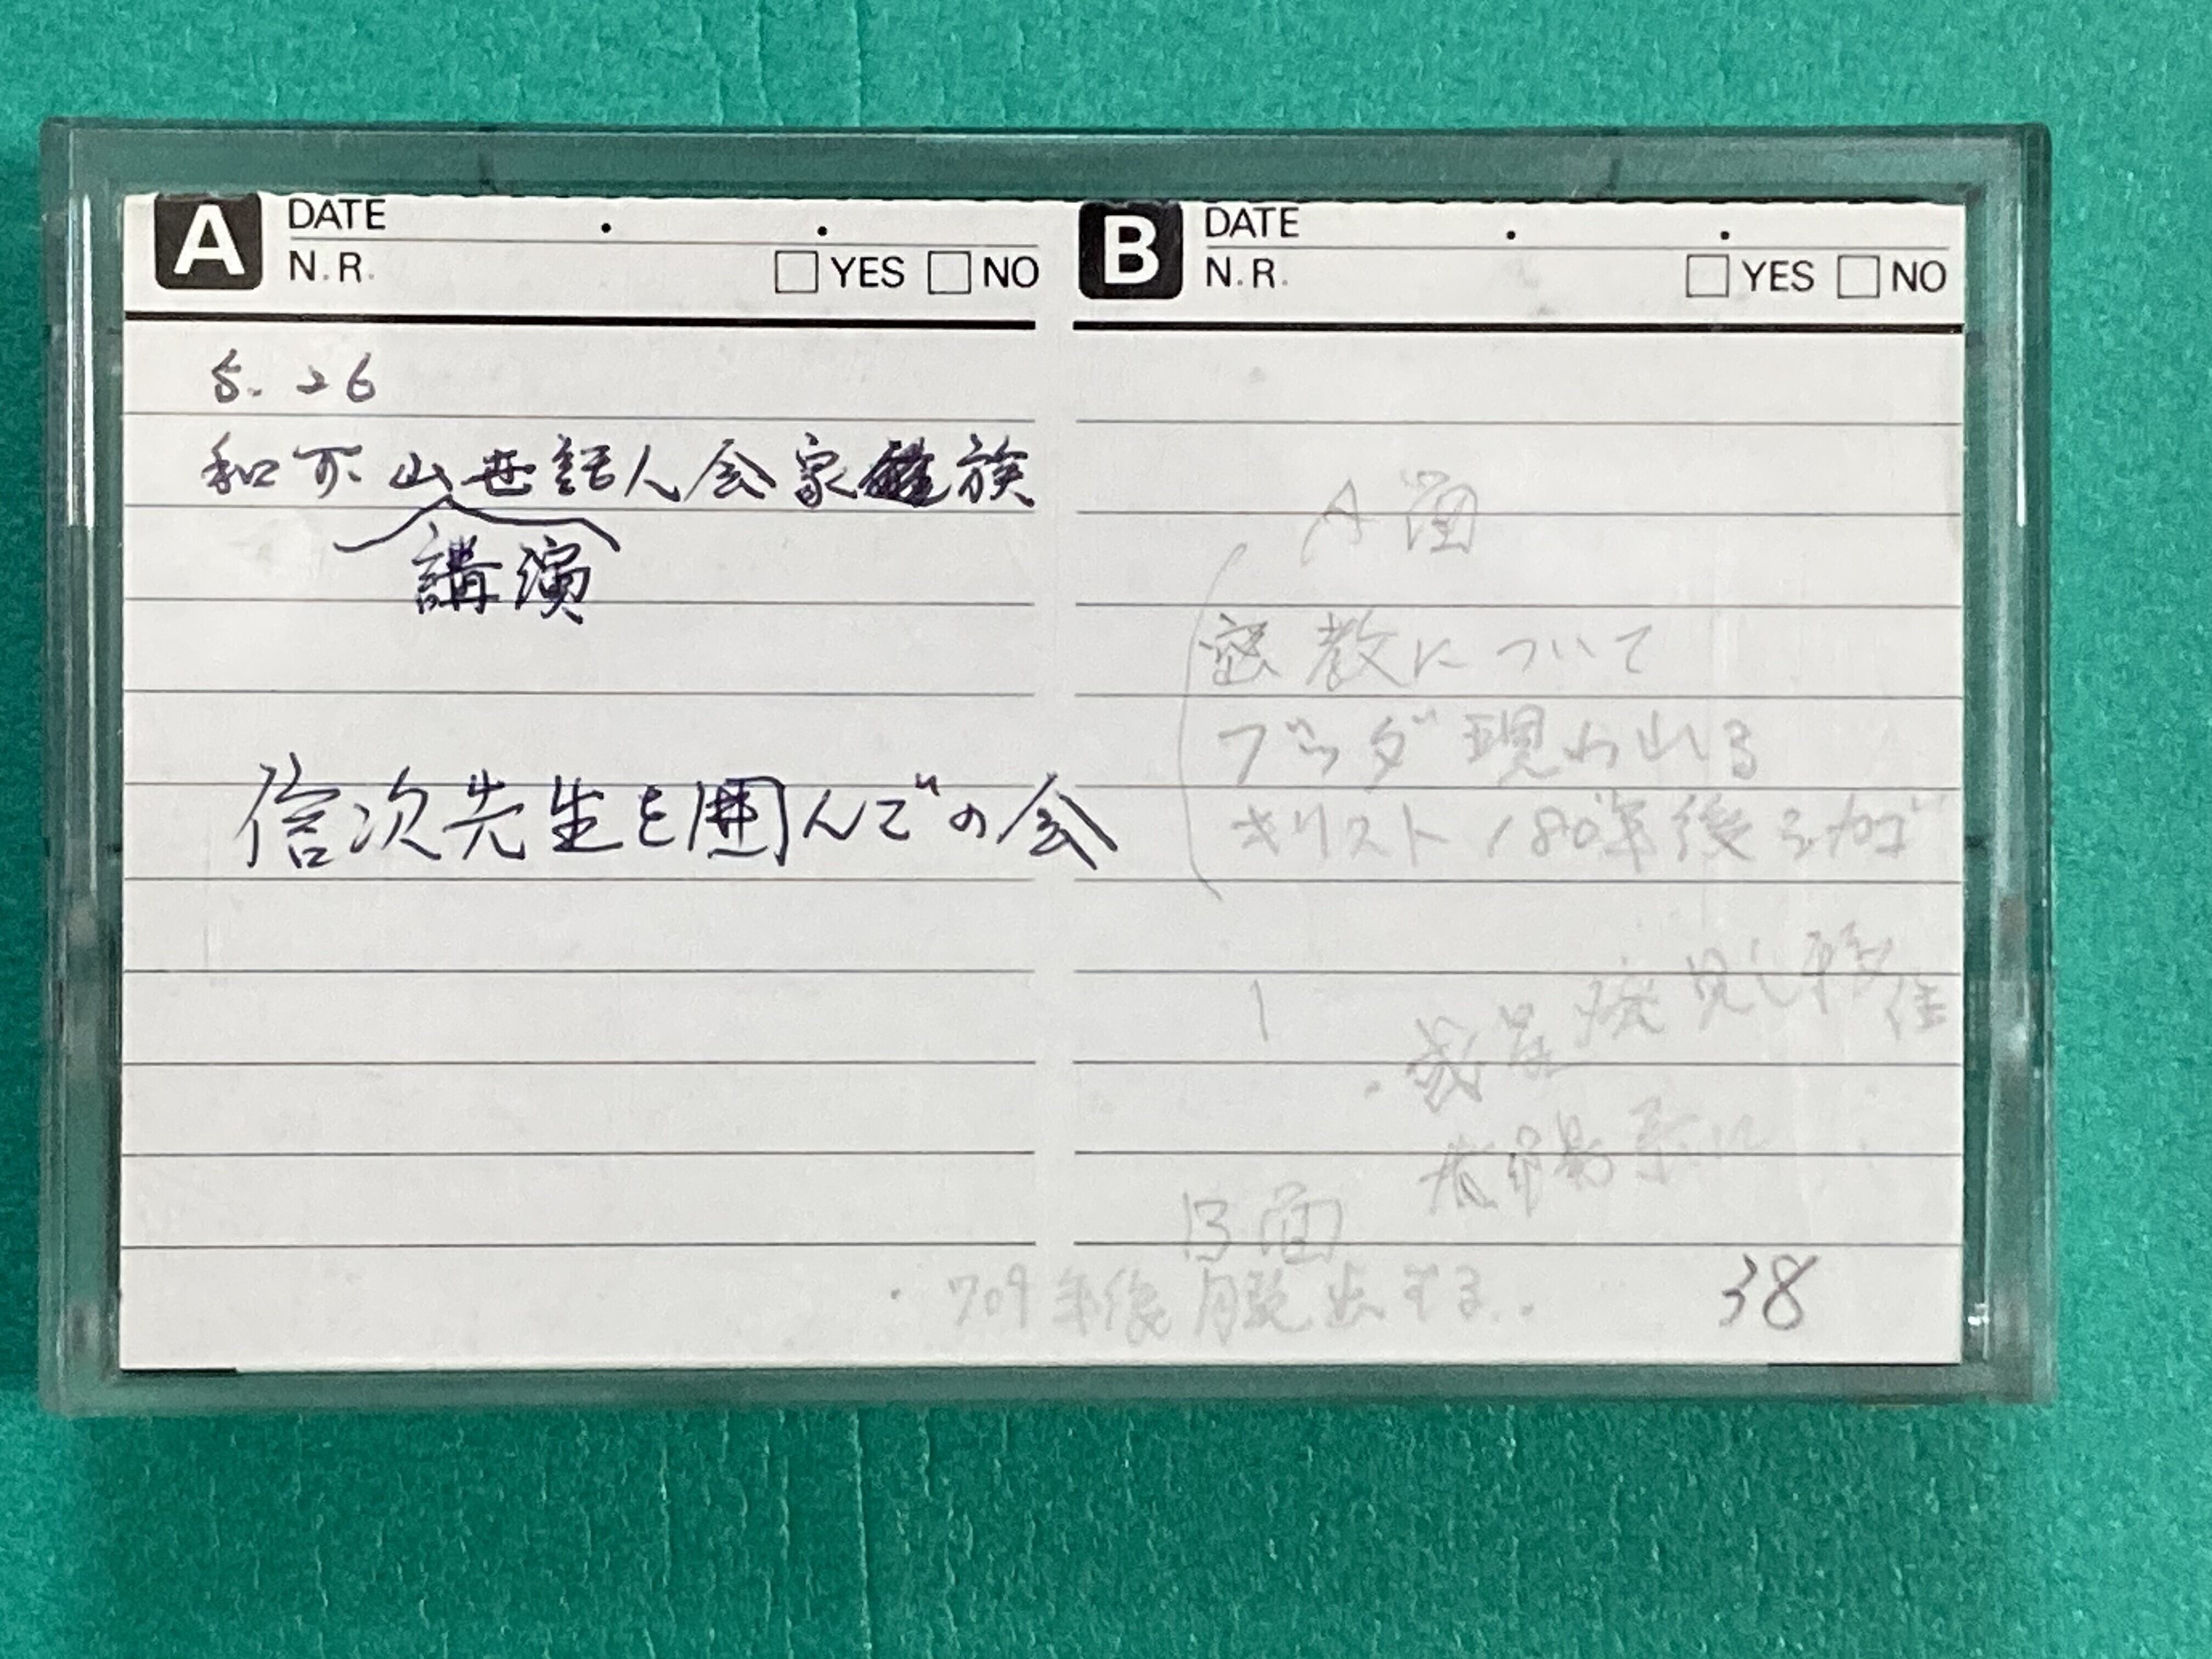 A DATE . .
N.R. YES NO
5.26
和 山世話人会家族
講演
信次先生を囲んでの会
B DATE . .
N.R. YES NO
A面
密教について
ブッダ現われる
キリスト180年後シカゴ
発見し移住
太陽系に
B面
・709年後月脱出する.
38